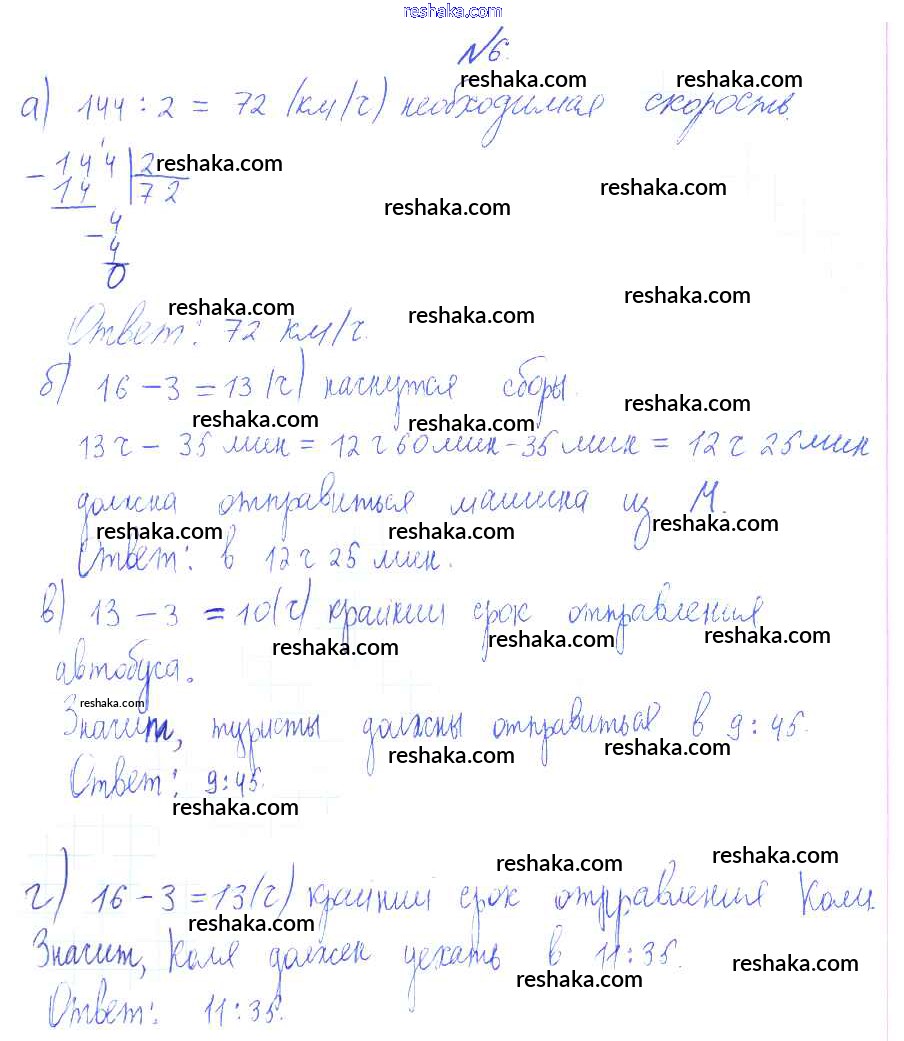 reshaka.com
№6.
reshaka.com reshaka.com
а) 144 : 2 = 72 (км/ч) необходимая скорость.
- 144 | 2 reshaka.com
14 | 72 reshaka.com
reshaka.com
- 4
4
0
reshaka.com reshaka.com reshaka.com
Ответ: 72 км/ч.
б) 16 - 3 = 13 (ч) начнутся сборы.
reshaka.com reshaka.com reshaka.com
13 ч - 35 мин = 12 ч 60 мин - 35 мин = 12 ч 25 мин
должна отправиться машина из М.
reshaka.com reshaka.com reshaka.com
Ответ: в 12 ч 25 мин.
в) 13 - 3 = 10 (ч) крайний срок отправления
reshaka.com reshaka.com reshaka.com
автобуса.
reshaka.com
Значит, туристы должны отправиться в 9:45.
reshaka.com reshaka.com
Ответ: 9:45.
reshaka.com
reshaka.com reshaka.com
г) 16 - 3 = 13 (ч) крайний срок отправления Коли.
reshaka.com
Значит, Коля должен уехать в 11:35.
reshaka.com reshaka.com
Ответ: 11:35.